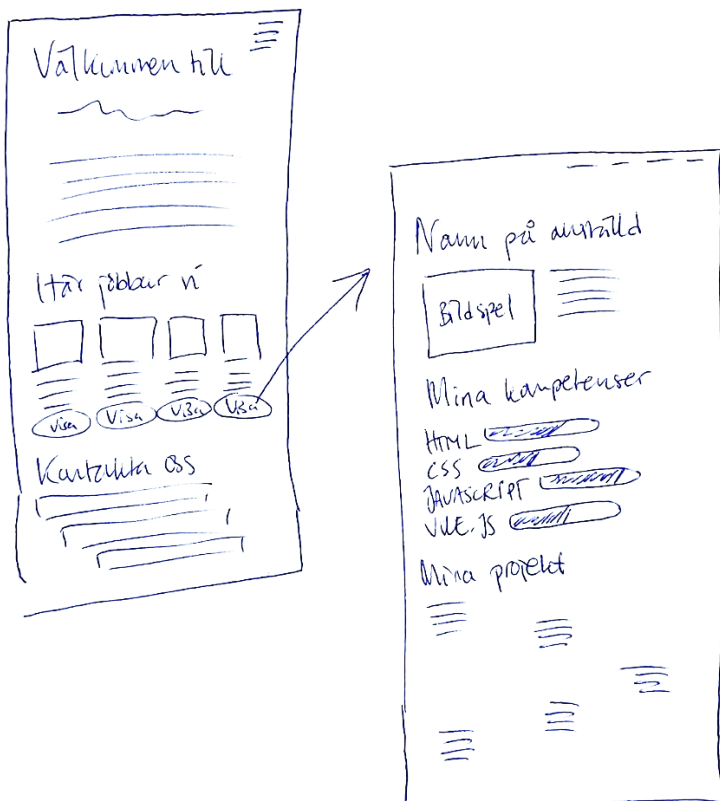 Välkommen till
Här jobbar vi
Visa Visa Visa Visa
Kontakta oss
Namn på anställd
Bildspel
Mina kompetenser
HTML
CSS
JAVASCRIPT
VUE.JS
Mina projekt